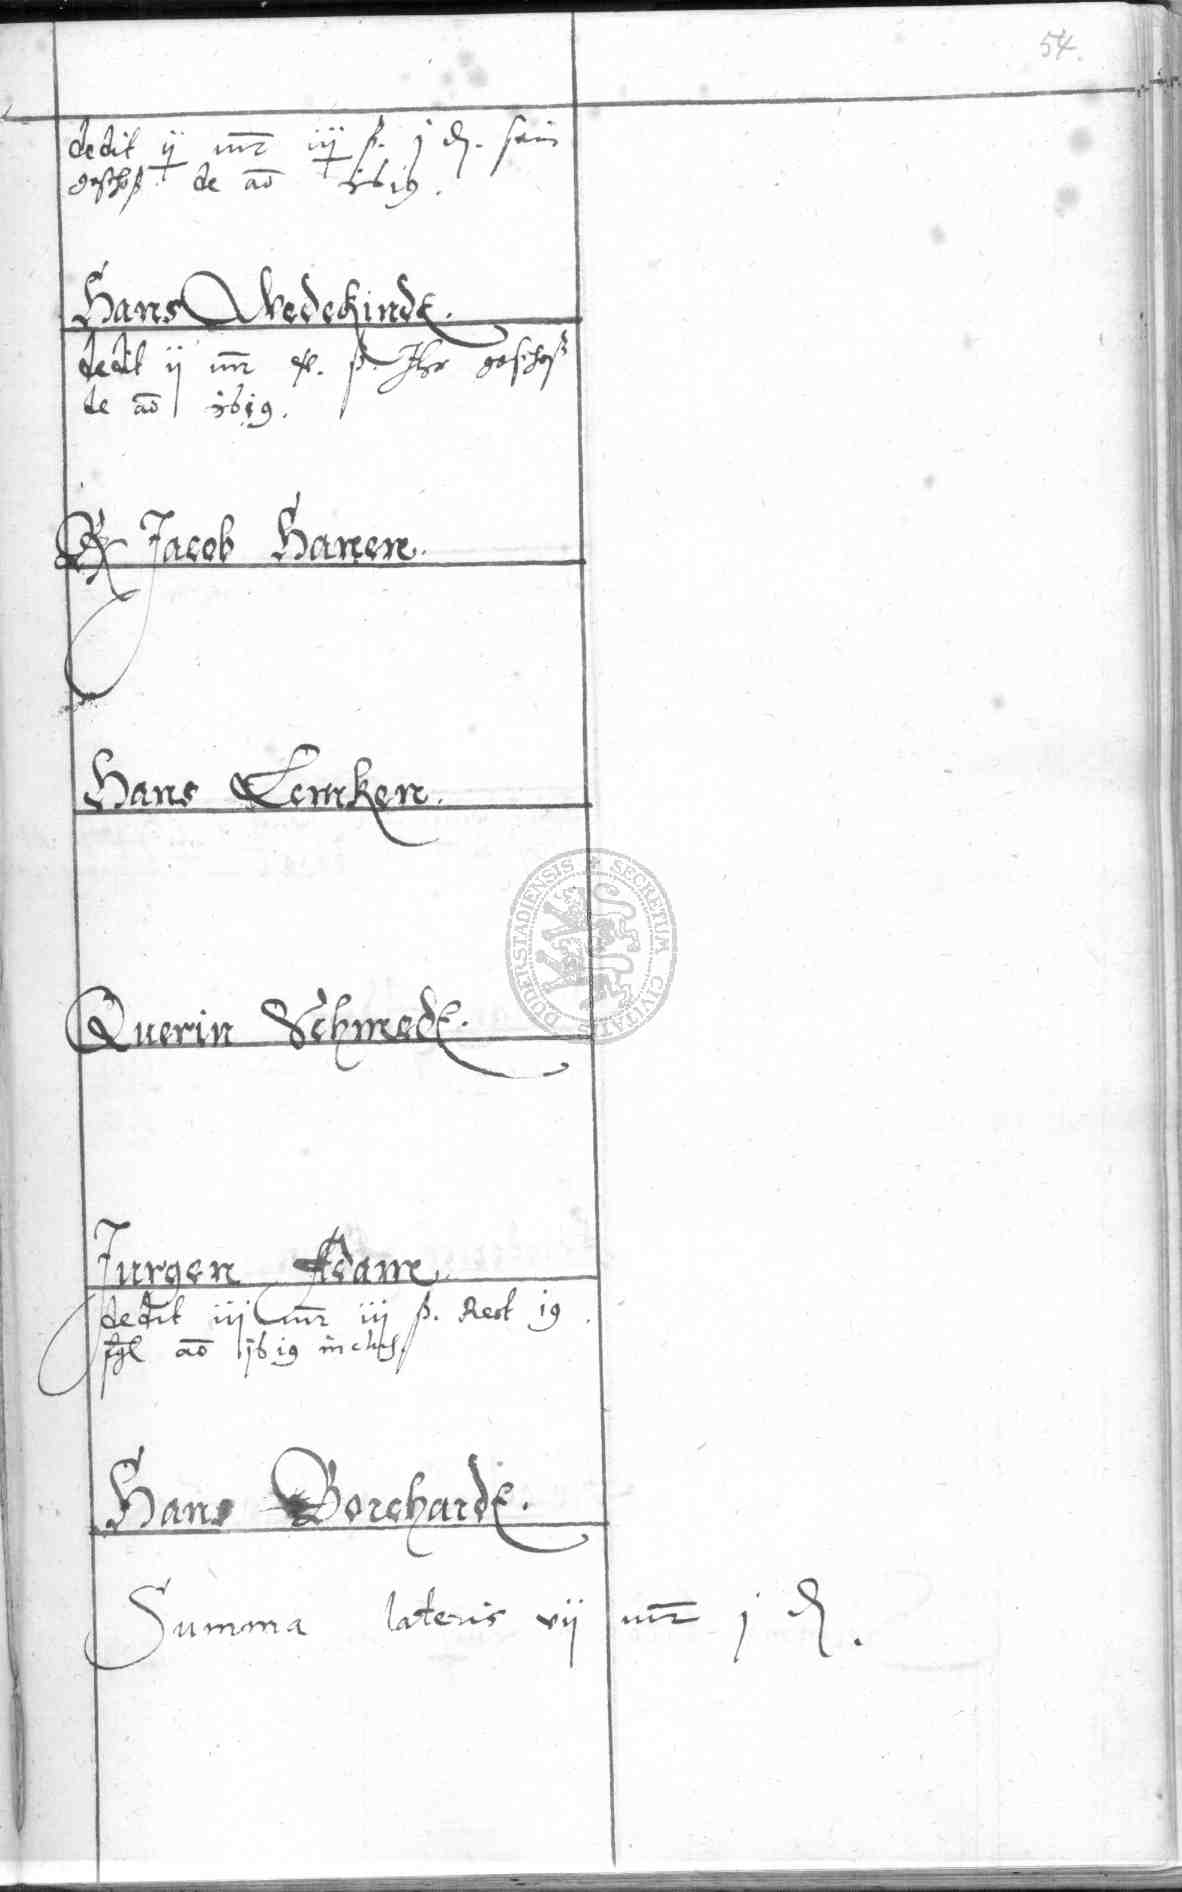 54.
dedit ij mr iij ß. j ₰. sein
geschoß de ao 1619.
Hans Wedekindt.
dedit ij mr x. ß. Ihr geschoß
de ao 1619.
Jacob Hanen.
Hans Lemken.
Querin Schmedt.
Jurgen Adam.
dedit iij mr iij ß. Rest 19
ao 1619 inclus
Hans Borchardt.
Summa lateris vij mr j ₰.
DUDERSTADIENSIS * SECRETUM CIVITATIS